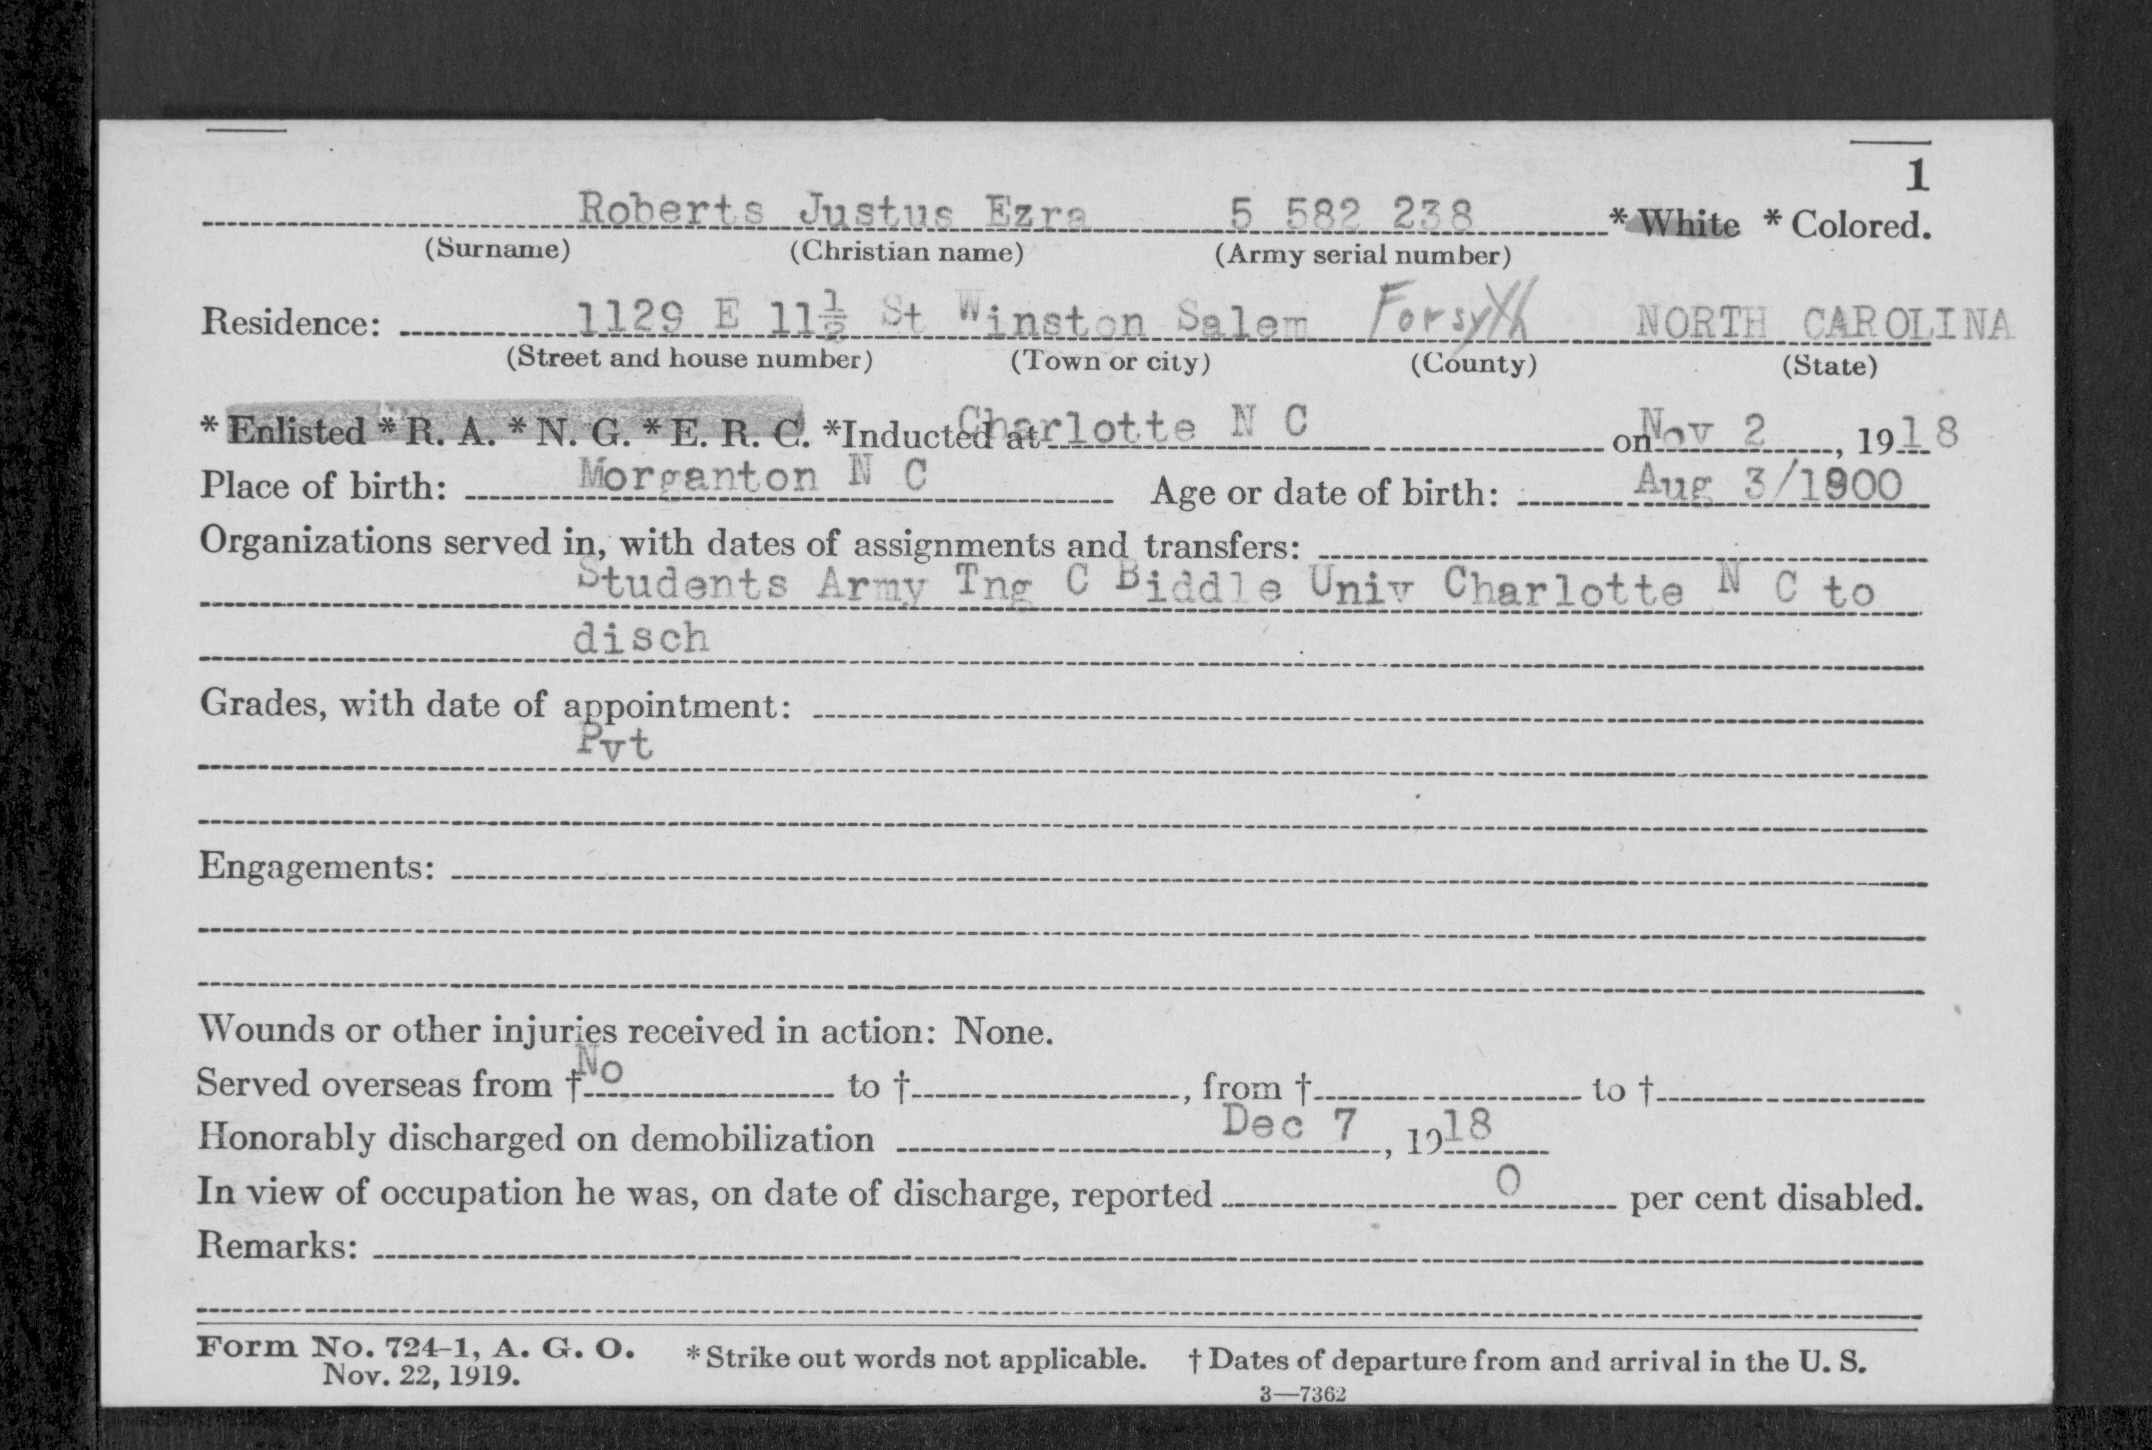 1
Roberts Justus Ezra 5 582 238 * White * Colored.
(Surname) (Christian name) (Army serial number)
Residence: 1129 E 11½ St Winston Salem Forsyth NORTH CAROLINA
(Street and house number) (Town or city) (County) (State)
* Enlisted * R. A. * N. G. * E. R. C. *Inducted at Charlotte N C on Nov 2, 1918
Place of birth: Morganton N C Age or date of birth: Aug 3/1900
Organizations served in, with dates of assignments and transfers:
Students Army Tng C Biddle Univ Charlotte N C to
disch
Grades, with date of appointment:
Pvt
Engagements:
Wounds or other injuries received in action: None.
Served overseas from † No to †, from † to †
Honorably discharged on demobilization Dec 7, 1918
In view of occupation he was, on date of discharge, reported 0 per cent disabled.
Remarks:
Form No. 724-1, A. G. O. * Strike out words not applicable. † Dates of departure from and arrival in the U. S.
Nov. 22, 1919.
3—7362